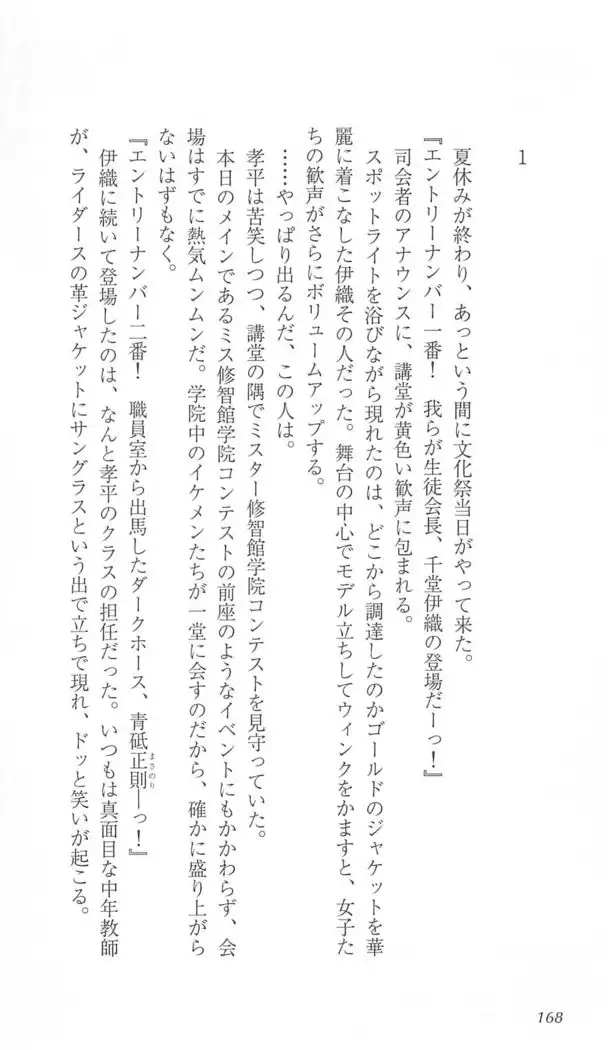 1
夏休みが終わり、あっという間に文化祭当日がやって来た。
『エントリーナンバー一番！　我らが生徒会長、千堂伊織の登場だーっ！』
司会者のアナウンスに、講堂が黄色い歓声に包まれる。
スポットライトを浴びながら現れたのは、どこから調達したのかゴールドのジャケットを華
麗に着こなした伊織その人だった。舞台の中心でモデル立ちしてウィンクをかますと、女子た
ちの歓声がさらにボリュームアップする。
……やっぱり出るんだ、この人は。
孝平は苦笑しつつ、講堂の隅でミスター修智館学院コンテストを見守っていた。
本日のメインであるミス修智館学院コンテストの前座のようなイベントにもかかわらず、会
場はすでに熱気ムンムンだ。学院中のイケメンたちが一堂に会すのだから、確かに盛り上がら
ないはずもなく。
『エントリーナンバー二番！　職員室から出馬したダークホース、青砥正則ーっ！』
まさのり
伊織に続いて登場したのは、なんと孝平のクラスの担任だった。いつもは真面目な中年教師
が、ライダースの革ジャケットにサングラスという出で立ちで現れ、ドッと笑いが起こる。
168